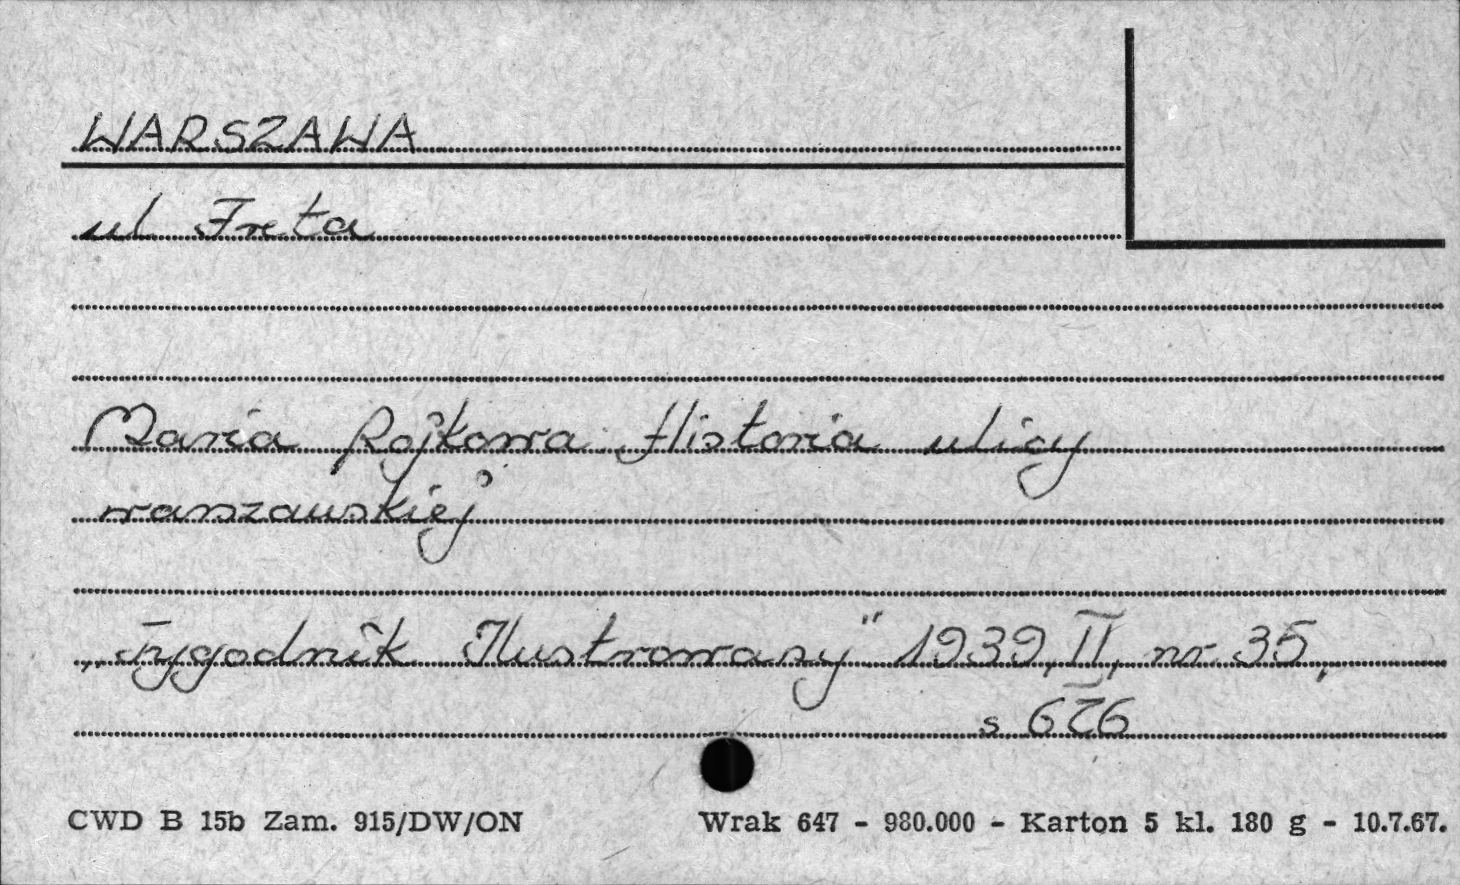 WARSZAWA
ul Freta
Maria Rojkowa Historia ulicy
warszawskiej
"Tygodnik Ilustrowany" 1939, II, nr 35,
s 676
CWD B 15b Zam. 915/DW/ON Wrak 647 - 980.000 - Karton 5 kl. 180 g - 10.7.67.